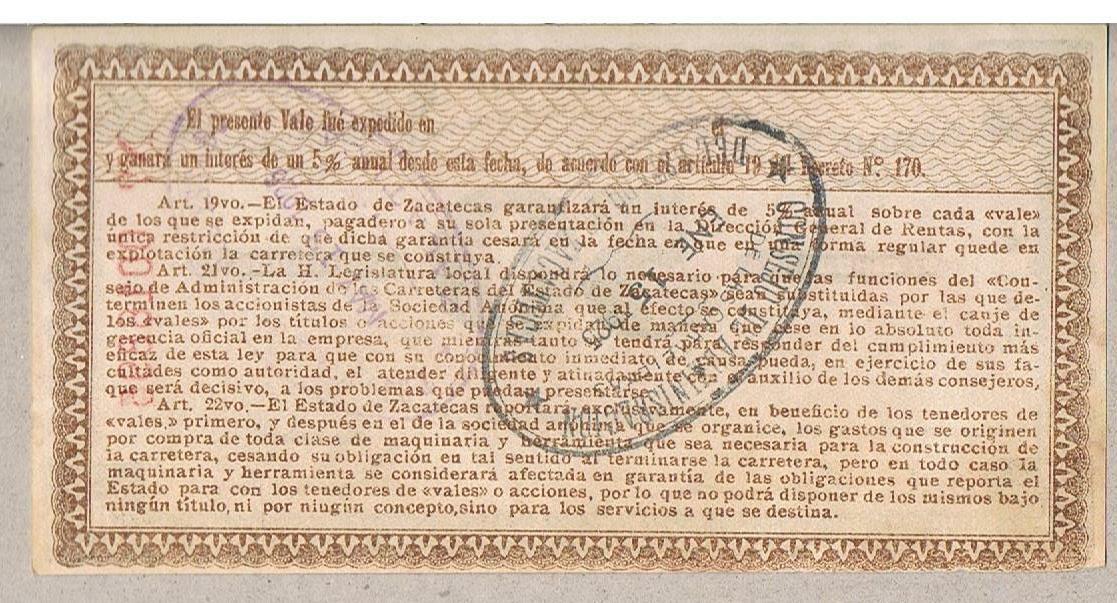 El presente Vale fué expedido en el
y ganará un interés de un 5% anual desde esta fecha, de acuerdo con el artículo 19 del Decreto N°. 170.
Art. 19vo.—El Estado de Zacatecas garantizará un interés de 5% anual sobre cada «vale»
de los que se expidan, pagadero a su sola presentación en la Dirección General de Rentas, con la
única restricción de que dicha garantía cesará en la fecha en que en forma regular quede en
explotación la carretera que se construya.
Art. 21vo.-La H. Legislatura local dispondrá lo necesario para que las funciones del «Con-
sejo de Administración de las Carreteras del Estado de Zacatecas» sean substituidas por las que de-
terminen los accionistas de la Sociedad Anónima que al efecto se constituya, mediante el canje de
los «vales» por los títulos o acciones que se expidan de manera que cese en lo absoluto toda in-
gerencia oficial en la empresa, que mientras tanto la tendrá para responder del cumplimiento más
eficaz de esta ley para que con su conocimiento inmediato de causa, pueda, en ejercicio de sus fa-
cultades como autoridad, el atender diligente y atinadamente con el auxilio de los demás consejeros,
que será decisivo, a los problemas que puedan presentarse.
Art. 22vo.—El Estado de Zacatecas reportará exclusivamente, en beneficio de los tenedores de
«vales,» primero, y después en el de la sociedad anónima que se organice, los gastos que se originen
por compra de toda clase de maquinaria y herramienta que sea necesaria para la construcción de
la carretera, cesando su obligación en tal sentido al terminarse la carretera, pero en todo caso la
maquinaria y herramienta se considerará afectada en garantía de las obligaciones que reporta el
Estado para con los tenedores de «vales» o acciones, por lo que no podrá disponer de los mismos bajo
ningún título, ni por ningún concepto, sino para los servicios a que se destina.
CONSEJO DE ADMINISTRACION